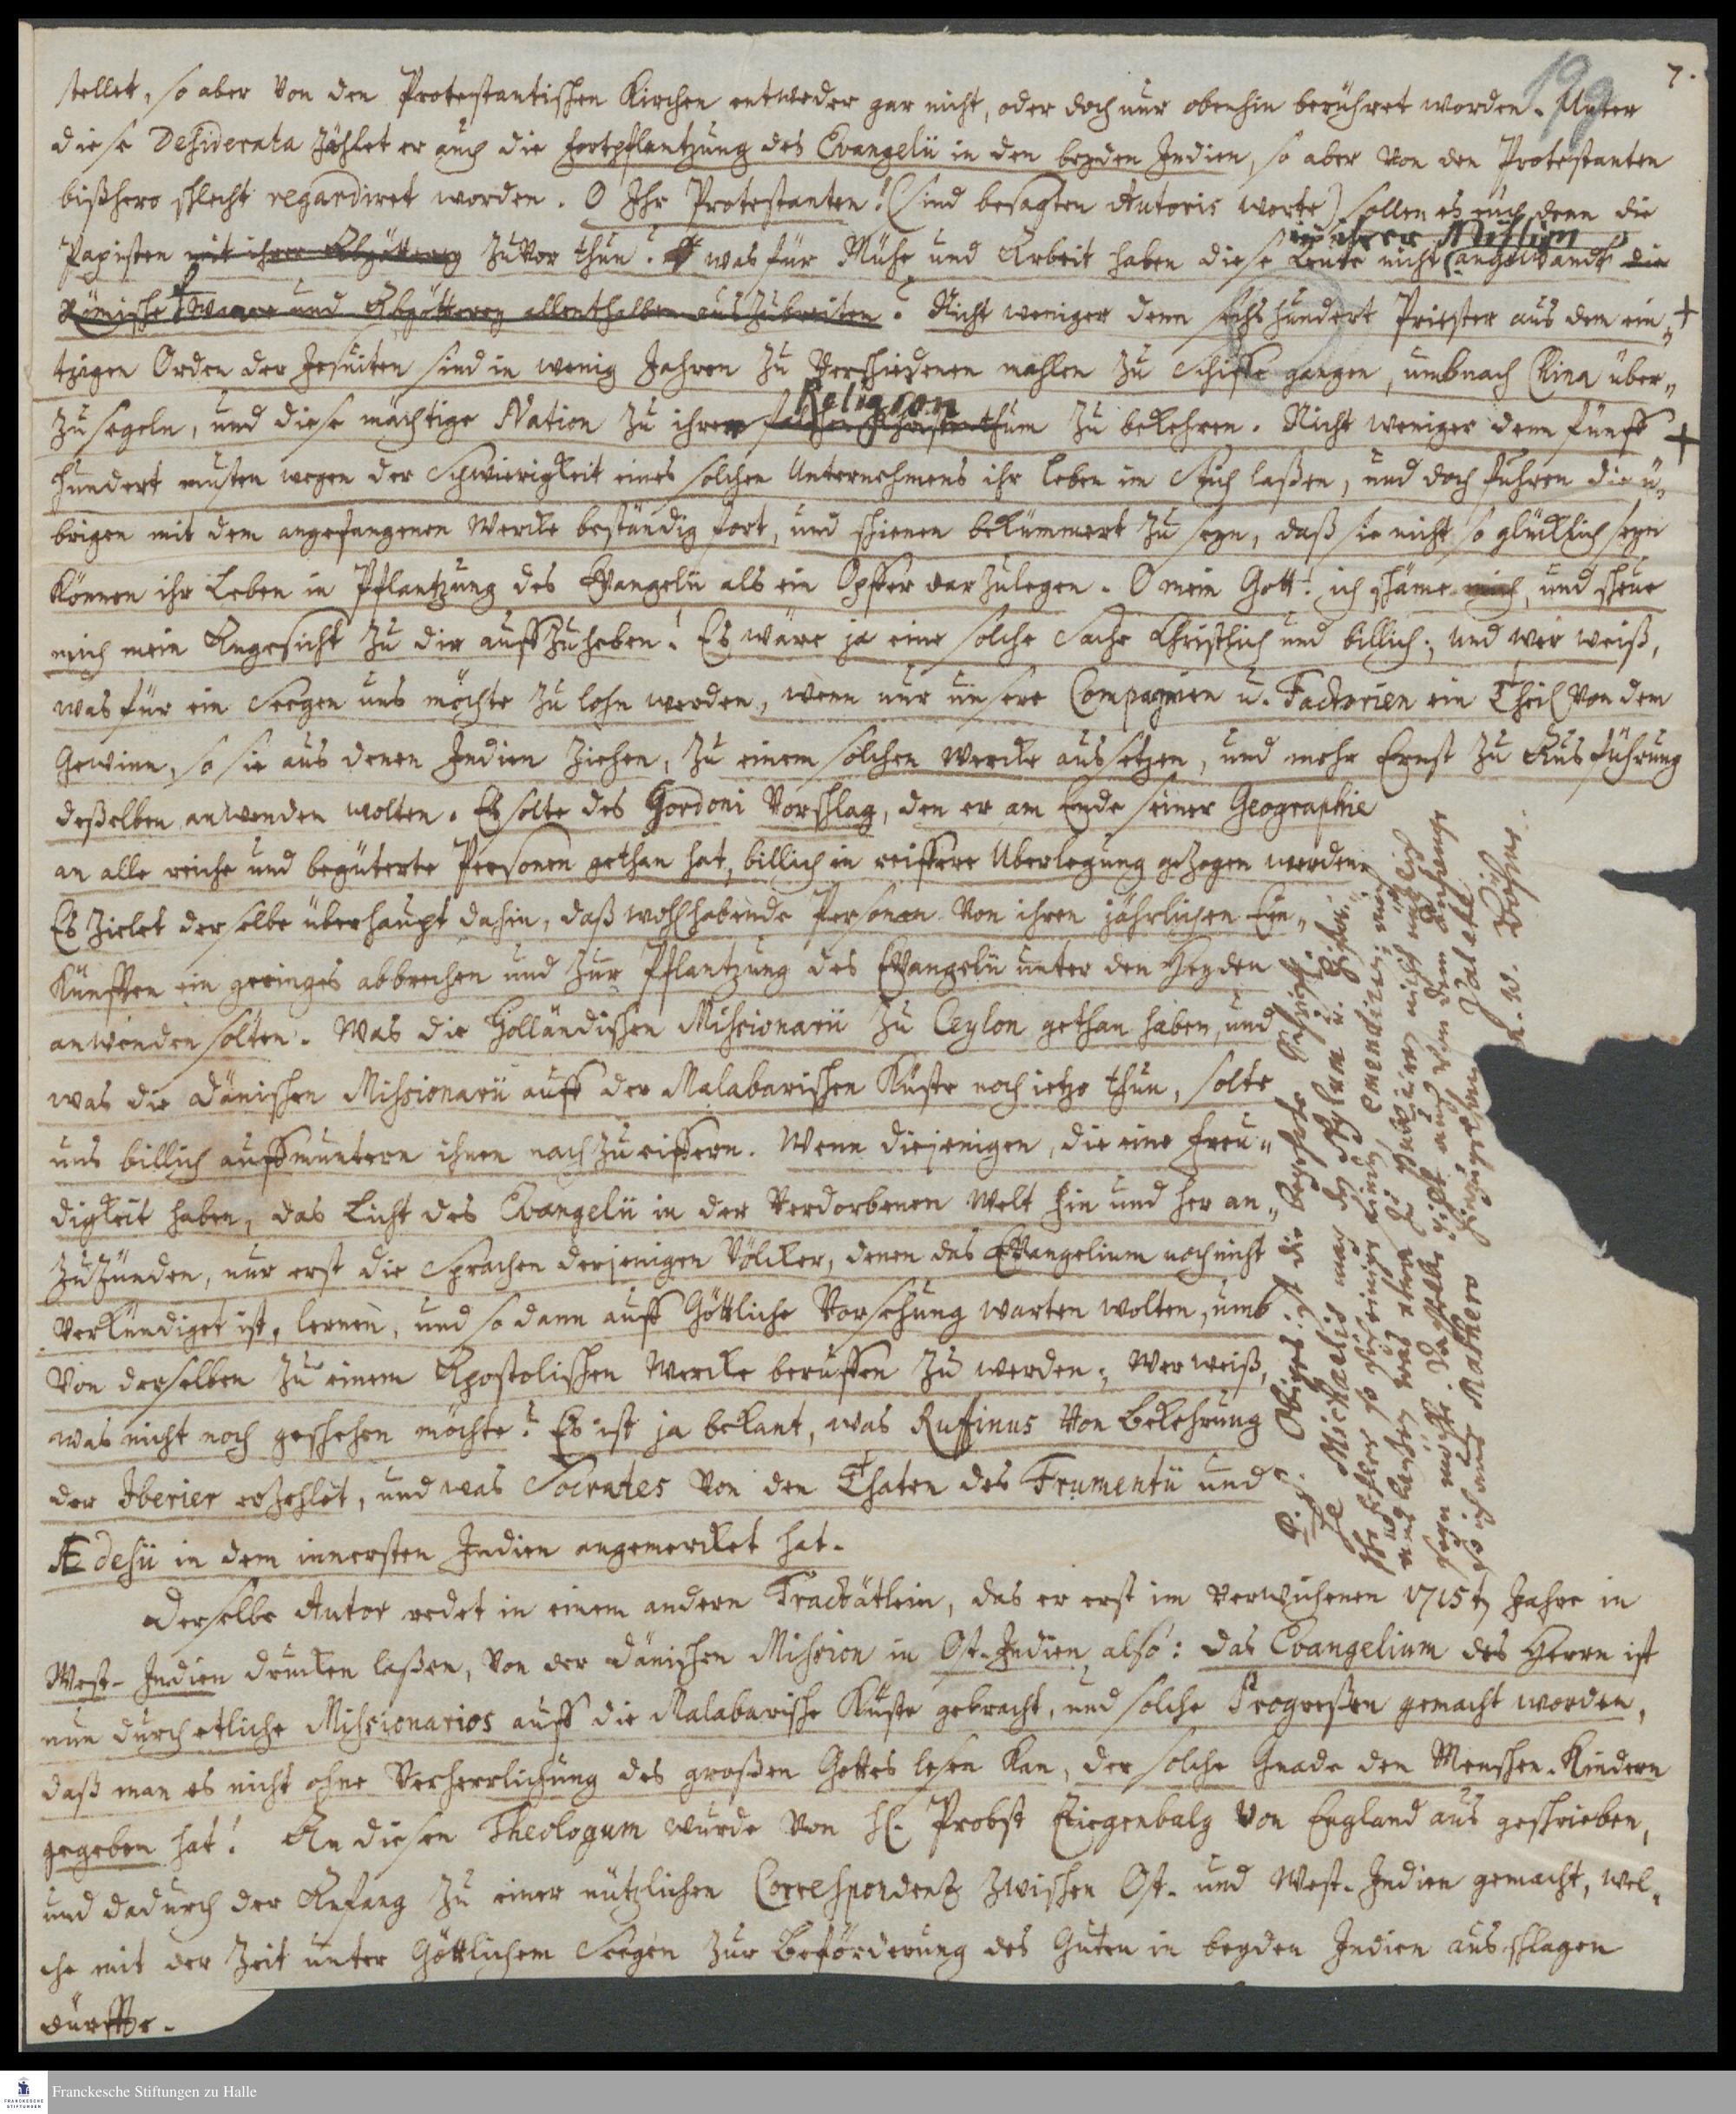 7.
199
stellet, so aber von den Protestantischen Kirchen entweder gar nicht, oder doch nur obenhin berühret worden. Unter
diese Desiderata zählet er auch die Fortpflantzung des Evangelii in den beyden Indien, so aber von den Protestanten
bißhero schlecht regardiret worden. O Ihr Protestanten! (sind besagten Autoris worte) sollen es euch denn die
in ihrer Mission
Papisten mit ihrer Abgötterey zuvor thun? was für Mühe und Arbeit haben diese Leute nicht angewandt die
Römische Waare und Abgötterey allenthalben auszubreiten? Nicht weniger denn sechshundert Priester aus dem ein- +
tzigen Orden der Jesuiten sind in wenig Jahren zu verschiedenen mahlen zu Schiffe gangen, umb nach China über-
Religion
zu segeln, und diese mächtige Nation zu ihrer falschen Christenthum zu bekehren. Nicht weniger denn fünff +
hundert musten wegen der Schwierigkeit eines solchen Unternehmens ihr Leben im Stich laßen, und doch fuhren die ü-
brigen mit dem angefangenen Wercke beständig fort, und schienen bekümmert zu seyn, daß sie nicht so glücklich seyn
können ihr Leben in Pflantzung des Evangelii als ein Opffer darzulegen. O mein Gott! ich schäme mich, und scheue
mich mein Angesicht zu dir auffzuheben! Es wäre ja eine solche Sache Christlich und billich; und wer weiß,
was für ein Seegen uns möchte zu lohn werden, wenn nur unsere Compagnien u. Factorien ein Theil von dem
Gewinn, so sie aus denen Indien ziehen, zu einem solchen Wercke aussetzen, und mehr Ernst zu Ausführung
deßelben anwenden wolten. Es solte des Gordoni Vorschlag, den er am Ende seiner Geographie
an alle reiche und begüterte Personen gethan hat, billich in reiffere Uberlegung gezogen werden.
Es zielet derselbe überhaupt dahin, daß wohlhabende Personen von ihren jährlichen Ein-
künfften ein geringes abbrechen und zur Pflantzung des Evangelii unter den Heyden
anwenden solten. Was die Holländischen Missionarii zu Ceylon gethan haben, und
was die Dänischen Missionarii auff der Malabarischen Küste noch ietzo thun, solte
uns billich auffmuntern ihnen nachzueiffern. Wenn diejenigen, die eine Freu-
digkeit haben, das Licht des Evangelii in der verdorbenen Welt hin und her an-
zuzünden, nur erst die Sprachen derjenigen Völcker, denen das Evangelium noch nicht
verkündiget ist, lernen, und so dann auff Göttliche Vorsehung warten wolten, umb
von derselben zu einem Apostolischen Wercke beruffen zu werden; Wer weiß,
was nicht noch geschehen möchte? Es ist ja bekant, was Ruffinus von Bekehrung
der Iberier erzehlet, und was Socrates von den Thaten des Frumentii und
Ædesii in dem innersten Indien angemercket hat.
Derselbe Autor redet in einem andern Tractätlein, das er erst im verwichenen 1715ten Jahre in
West-Indien drucken laßen, von der Dänischen Mission in Ost-Indien also: Das Evangelium des Herrn ist
nun durch etliche Missionarios auff die Malabarische Küste gebracht, und solche Progreßen gemacht worden,
daß man es nicht ohne Verherrlichung des großen Gottes lesen kan, der solche Gnade den Menschen-Kindern
gegeben hat! An diesen Theologum wurde von H. Probst Ziegenbalg von England aus geschrieben,
und dadurch der Anfang zu einer nützlichen Correspondentz zwischen Ost- und West-Indien gemacht, wel-
che mit der Zeit unter Göttlichem Seegen zur Beförderung des Guten in beyden Indien ausschlagen
dürffte.
P. S. Obiges ist die begehrte Schrifft
Michaelis mag den Stylum u.
so hier einige emendiren
etwa zu
auch von dem anhange
so ich aus Mathero hinzugethan. Valete
W. Böhme.
Franckesche Stiftungen zu Halle